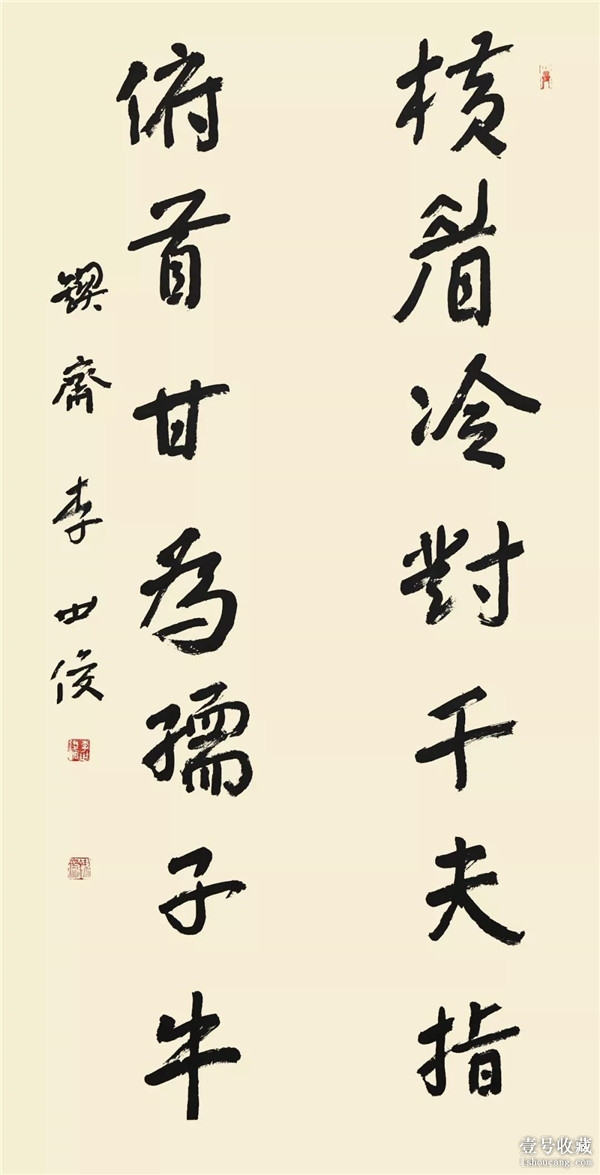 横眉冷對千夫指
俯首甘為孺子牛
鍥齋李世俊
壹号收藏
1shoucang.com